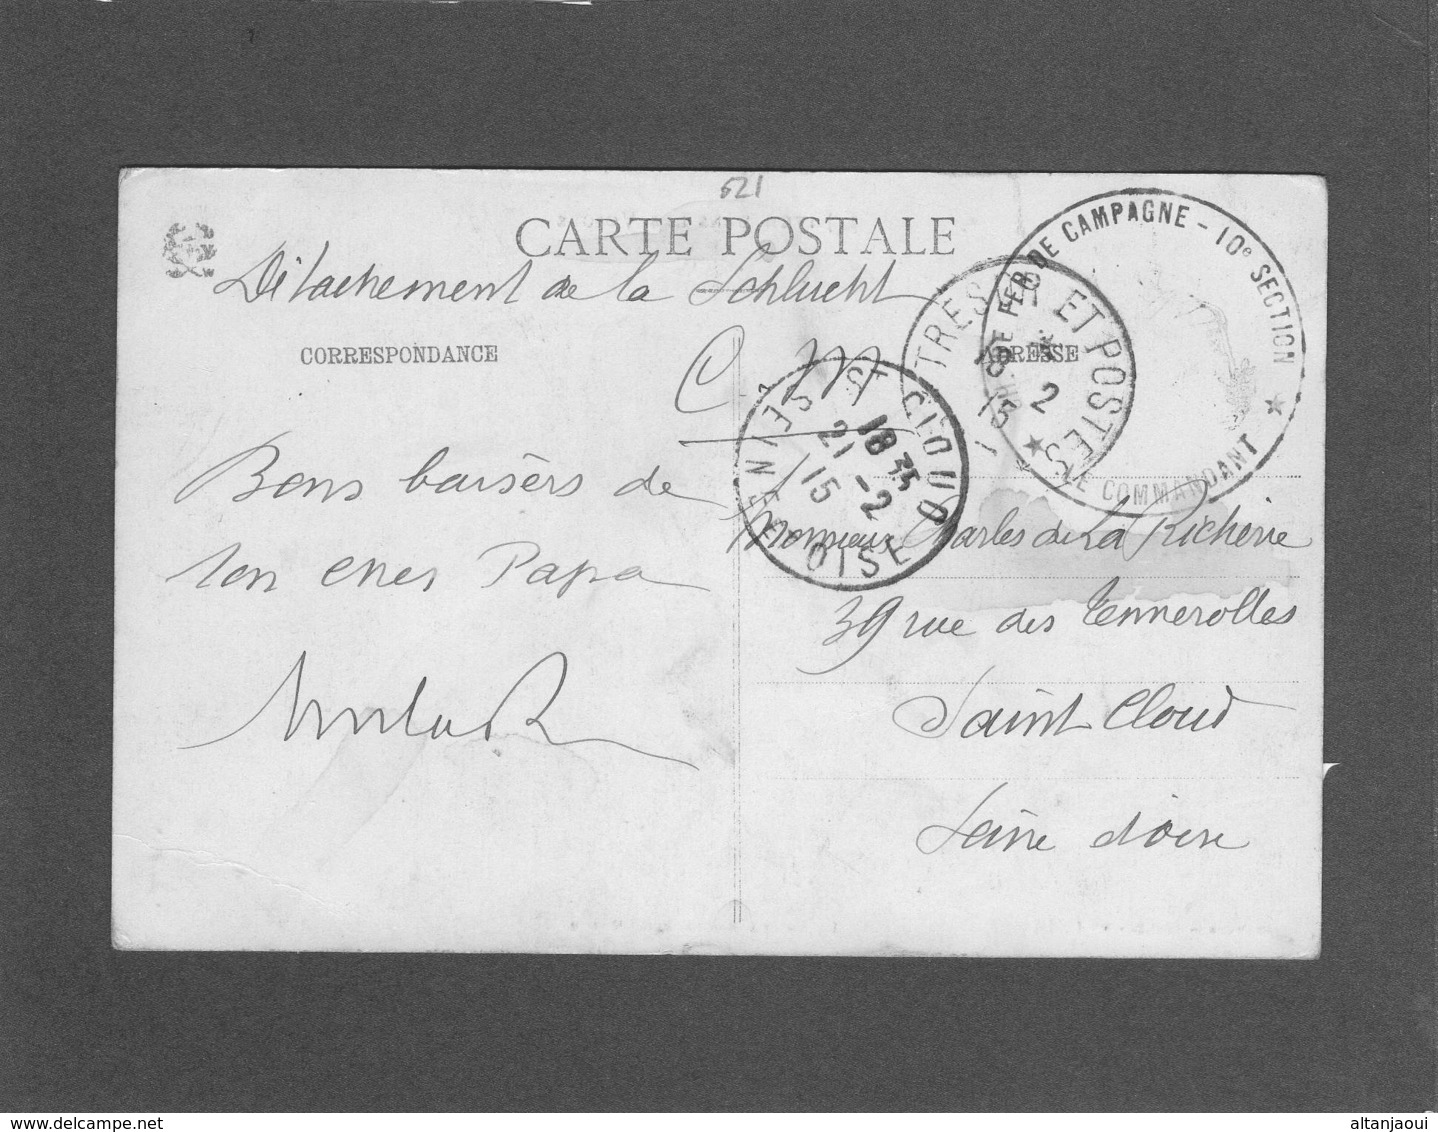 521
CARTE POSTALE
Détachement de la Schlucht
C. M
CORRESPONDANCE
ADRESSE
Bons baisers de
ton cher Papa
Monsieur Charles de La Richerie
39 rue des Tennerolles
Saint Cloud
Seine d'oise
DE FER DE CAMPAGNE - 10e SECTION
LE COMMANDANT
TRESOR ET POSTES
18
2
15
ST CLOUD
18 35
21 -2
15
SEINE ET OISE
delcampe.net
altanjaoui